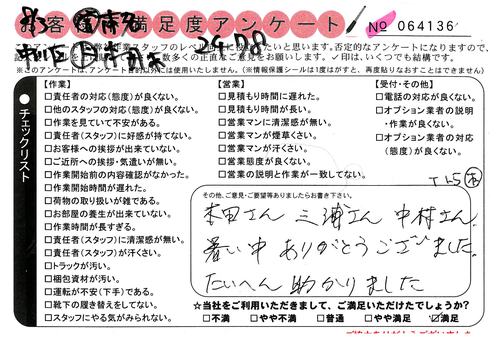 お客様満足度アンケート
№ 064136
のアンケートは弊社作業スタッフのレベル向上に役立てたいと思います。否定的なアンケートになりますので、
数多くの正直なご意見をお願いします。✓印は、いくつでも結構です。
※このアンケートは、アンケート目的以外には使用いたしません。(※情報保護シールは1度はがすと、再度貼りなおすことはできません)
● チェックリスト
【作業】
□責任者の対応(態度)が良くない。
□他のスタッフの対応(態度)が良くない。
□作業を見ていて不安がある。
□責任者(スタッフ)に好感が持てない。
□お客様への挨拶が出来ていない。
□ご近所への挨拶・気遣いが無い。
□作業開始前の内容確認がなかった。
□作業開始時間が遅れた。
□荷物の取り扱いが雑である。
□お部屋の養生が出来ていない。
□作業時間が長すぎる。
□責任者(スタッフ)に清潔感が無い。
□責任者(スタッフ)が汗くさい。
□トラックが汚い。
□梱包資材が汚い。
□運転が不安(下手)である。
□靴下の履き替えをしてない。
□スタッフにやる気がみられない。
【営業】
□見積もり時間に遅れた。
□見積もり時間が長い。
□営業マンに清潔感が無い。
□営業マンが煙草くさい。
□営業マンが汗くさい。
□営業態度が良くない。
□営業の説明と作業が一致してない。
【受付・その他】
□電話の対応が良くない。
□オプション業者の説明
・作業が良くない。
□オプション業者の対応
(態度)が良くない。
その他、ご意見・ご要望等ありましたらお書き下さい。
本田さん 三浦さん 中村さん
暑い中 ありがとうございました。
たいへん 助かりました
☆当社をご利用いただきまして、ご満足いただけたでしょうか?
□不満 □やや不満 □普通 □やや満足 ☑満足